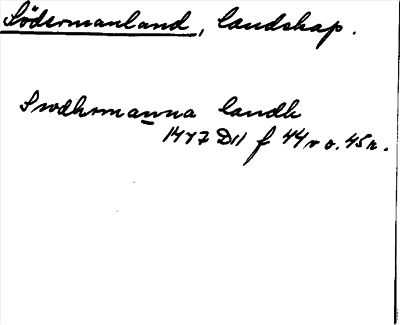 Södermanland, landskap.
Swdhrmanna landh
1477 D11 f 44v o. 45r.